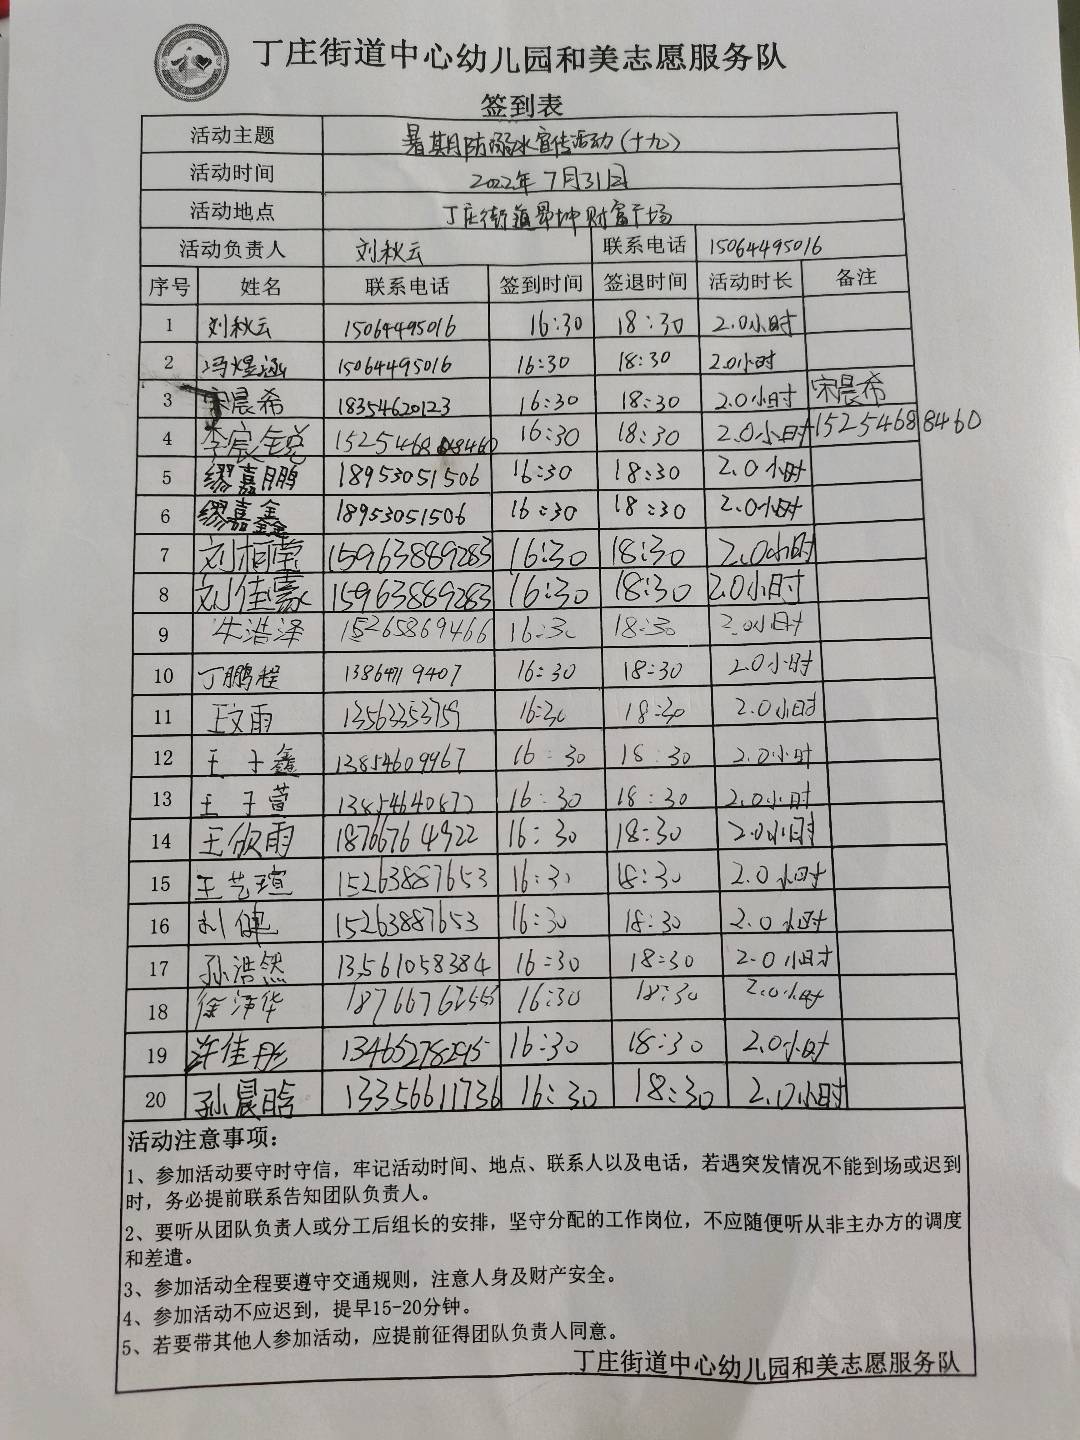 丁庄街道中心幼儿园和美志愿服务队
签到表
活动主题 暑期防溺水宣传活动(十九)
活动时间 2022年7月31日
活动地点 丁庄街道昂坤财富广场
活动负责人 刘秋云 联系电话 15064495016
序号 姓名 联系电话 签到时间 签退时间 活动时长 备注
1 刘秋云 15064495016 16:30 18:30 2.0小时
2 冯煜涵 15064495016 16:30 18:30 2.0小时
3 宋晨希 18354620123 16:30 18:30 2.0小时 宋晨希
4 李宸 16:30 18:30 2.0小时 15254688460
5 缪嘉鹏 18953051506 16:30 18:30 2.0小时
6 缪嘉鑫 18953051506 16:30 18:30 2.0小时
7 刘柯莹 15963889283 16:30 18:30 2.0小时
8 刘佳 15963889283 16:30 18:30 2.0小时
9 牛浩泽 15265869466 16:30 18:30 2.0小时
10 丁鹏程 13864719407 16:30 18:30 2.0小时
11 王文雨 13563353759 16:30 18:30 2.0小时
12 王子鑫 13854609967 16:30 18:30 2.0小时
13 王子萱 13854640872 16:30 18:30 2.0小时
14 王欣雨 18766764922 16:30 18:30 2.0小时
15 王艺瑄 15263887653 16:30 18:30 2.0小时
16 刘健 15263887653 16:30 18:30 2.0小时
17 孙浩然 13561058384 16:30 18:30 2.0小时
18 徐泽华 16:30 18:30 2.0小时
19 许佳彤 16:30 18:30 2.0小时
20 孙晨皓 13356611736 16:30 18:30 2.0小时
活动注意事项：
1、参加活动要守时守信，牢记活动时间、地点、联系人以及电话，若遇突发情况不能到场或迟到
时，务必提前联系告知团队负责人。
2、要听从团队负责人或分工后组长的安排，坚守分配的工作岗位，不应随便听从非主办方的调度
和差遣。
3、参加活动全程要遵守交通规则，注意人身及财产安全。
4、参加活动不应迟到，提早15-20分钟。
5、若要带其他人参加活动，应提前征得团队负责人同意。
丁庄街道中心幼儿园和美志愿服务队